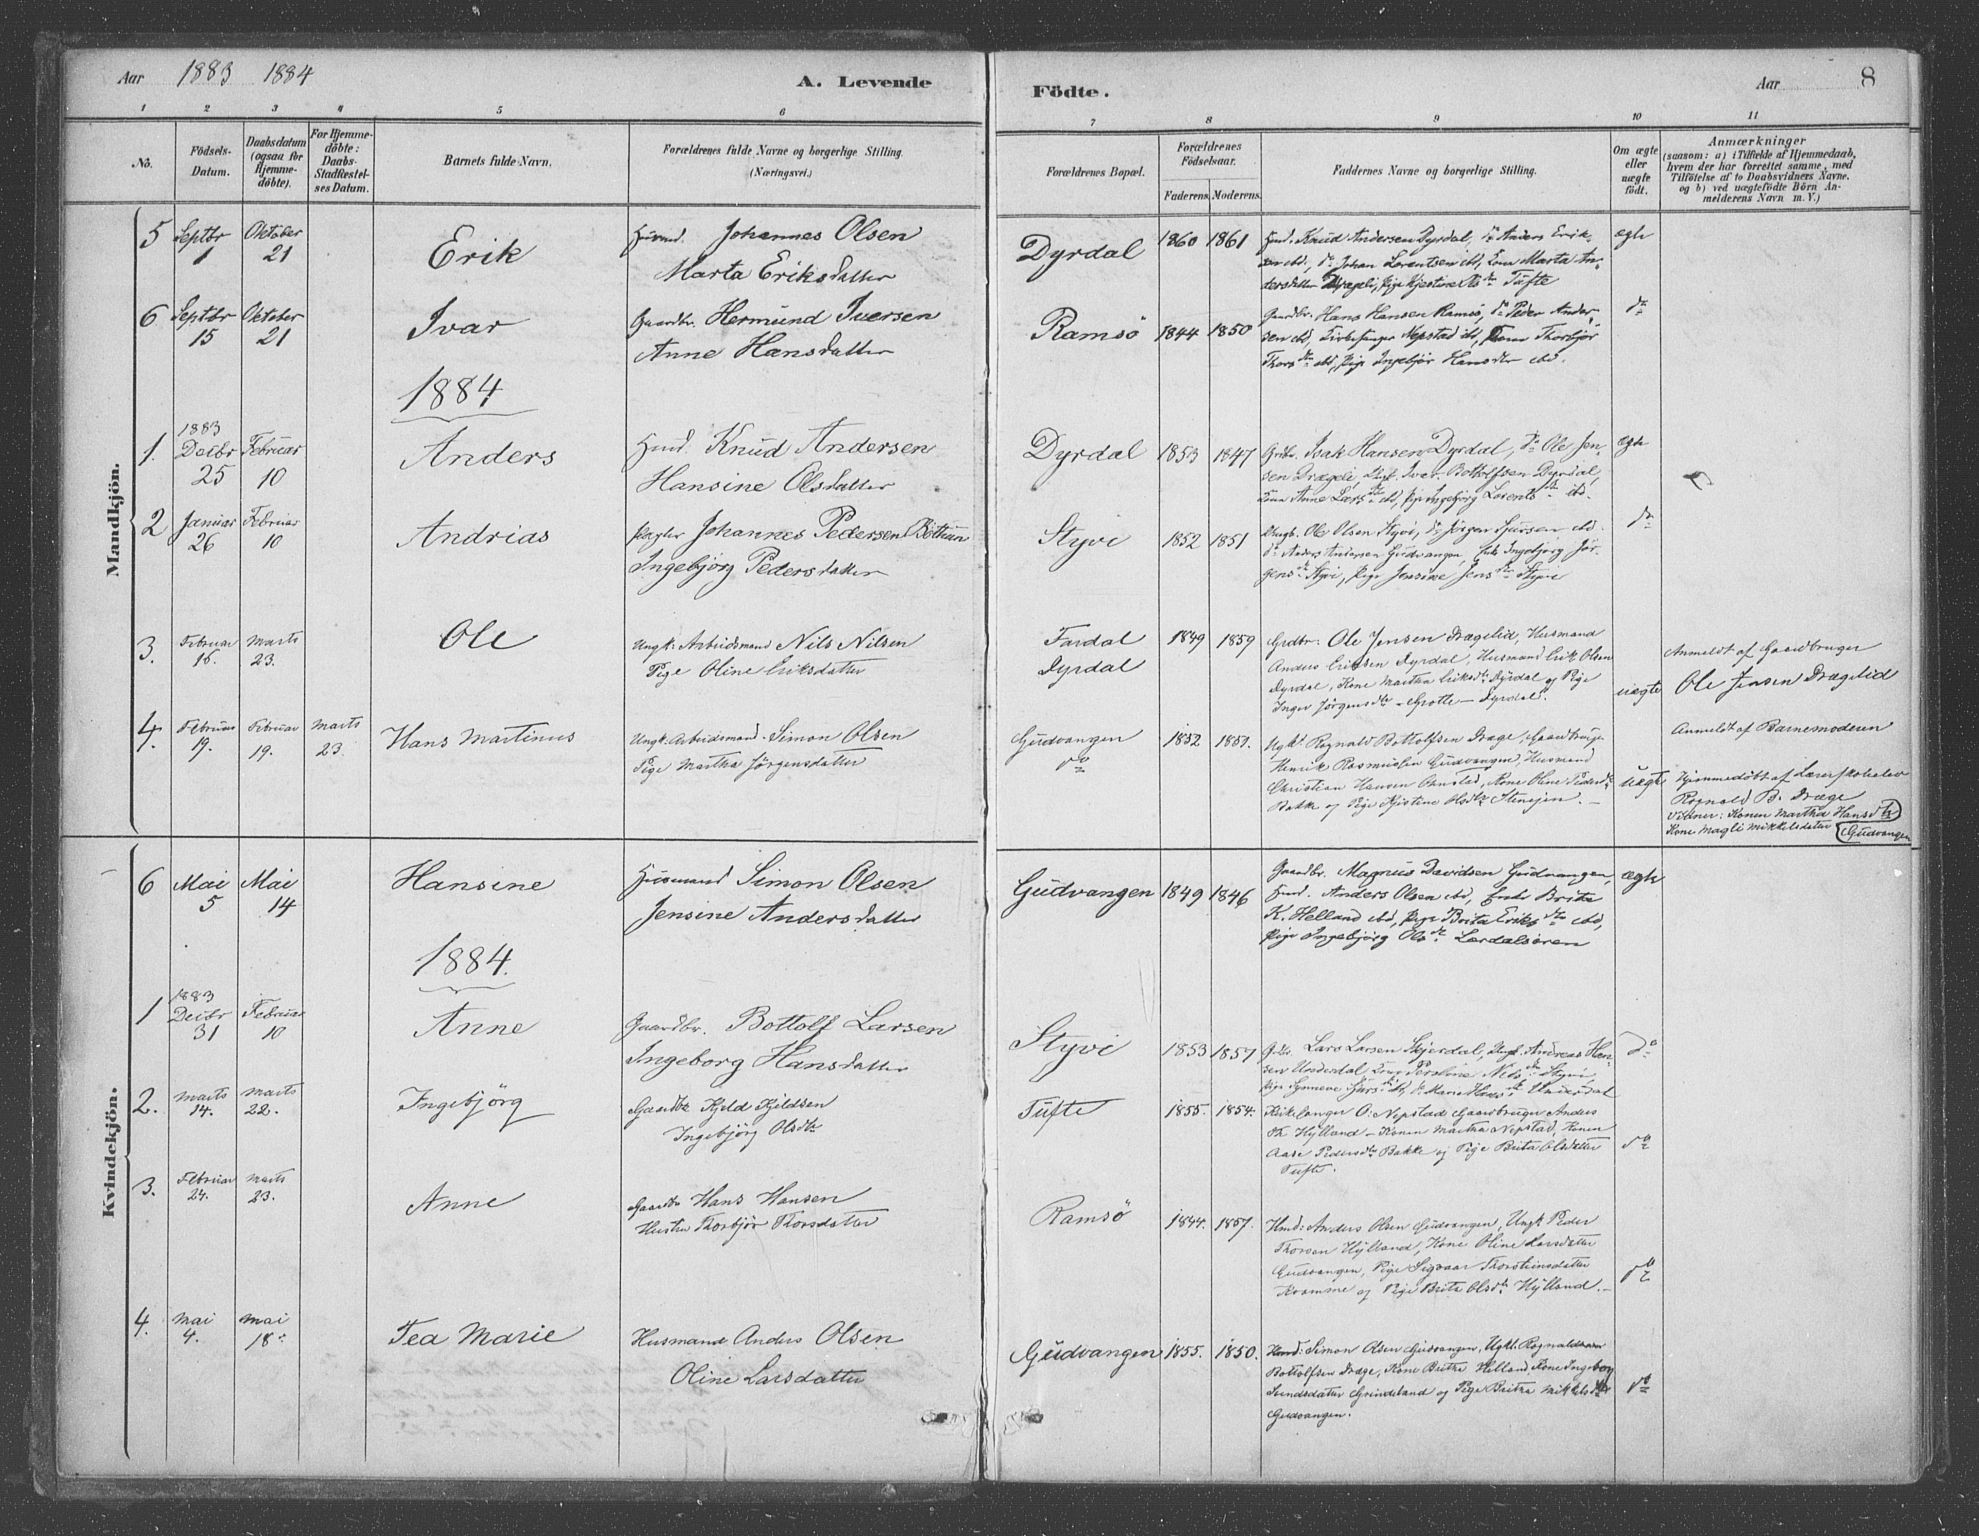 Aar 1883 1884
A. Levende
Födte.
Aar
8
1 2 3 4 5 6 7 8 9 10 11
No.
Födsels-
Datum.
Daabsdatum
(ogsaa for
Hjemme-
döbte).
For Hjemme-
döbte:
Daabs-
Stadfæstel-
ses Datum.
Barnets fulde Navn.
Forældrenes fulde Navne og borgerlige Stilling.
(Næringsvei.)
Forældrenes Bopæl.
Forældrenes
Födselsaar.
Faderens. Moderens.
Faddernes Navne og borgerlige Stilling.
Om ægte
eller
uægte
födt.
Anmærkninger
(saasom: a) i Tilfælde af Hjemmedaab,
hvem der har forrettet samme, med
Tilföielse af to Daabsvidners Navne.
og b) ved uægtefödte Börn An-
melderens Navn m. V.)
Mandkjön.
5 Septbr Oktober
1 21
Erik
Johannes Olsen
Marta Eriksdatter
Dyrdal 1860 1861
Knud Andersen Dyrdal, do Anders Erik-
sen ibd, do Johan Lorentsen ibd, Kone Marta An-
dersdatter Drægeli, Pige Kjestine Tufte
ægte
6 Septbr Oktober
15 21
Ivar
Gaardbr. Hermund Iversen
Anne Hansdatter
Ramsö 1844 1850
Gaardbr. Hans Hansen Ramsö, do Peder Ander-
sen ibd, Kirkesanger Nepstad ibd, Kone Thorbjör
Thorsdtr ibd, Pige Ingebjör Hansdtr ibd.
do
1884
1. 1883
Decbr Februar
25 10
Anders
Husmd. Knud Andersen
Hansine Olsdatter
Dyrdal 1853 1847
Grdbr. Isak Hansen Dyrdal, do Ole Jen-
sen Drægeli, Ungk. Iver Bottolfsen Dyrdal,
Kone Anne Larsdtr ibd, Pige Ingebjörg Lorentsdtr ibd.
ægte
2 Januar Februar
26 10
Andrias
Johannes Pedersen Böthun
Ingebjörg Pedersdatter
Styvi 1852 1851
Ole Olsen Styvi, do Jörgen Sjursen ibd.
do Anders Andersen Gudvangen, Enke Ingebjörg Jör-
gensdtr Styvi, Pige Jensine Jensdtr Styvi
do
3. Februar Marts
16. 23.
Ole
Ungk: Arbeidsmand Nils Nilsen
Pige Oline Eriksdatter
Fardal 1849 1859
Dyrdal
Grdbr: Ole Jensen Drægelid, Husmand
Anders Eriksen Dyrdal, Husmand Erik Olsen
Dyrdal, Kone Martha Eriksdtr Dyrdal og Pige
Inger Jörgensdtr - Grotle - Dyrdal.
uægte
Anmeldt af Gaardbruger
Ole Jensen Drægelid
4. Februar Februar Marts
19. 19. 23.
Hans Martinus
Ungk. Arbeidsmand. Simon Olsen
Pige Martha Jörgensdatter
Gudvangen 1852 1857.
do
Ungk. Rognald Bottolfsen Drage, Gaardbruger
Henrik Rasmussen Gudvangen, Husmand
Christian Hansen Ramsö, Kone Oline Pedersdtr
Bakke og Pige Kjistine Olsdtr Stensjen.
uægte
Anmeldt af Barnemoderen
Hjemmedöbt af Lærerskoleelev
Rognald B. Dræge
Vidner: Konen Martha Hansdtr
Kone Magli Mikkelsdatter Gudvangen
Kvindekjön.
6 Mai Mai
5 14
Hansine
Husmand Simon Olsen
Jensine Andersdatter
Gudvangen 1849 1846
Gaardbr. Magnus Davidsen Gudvangen,
Husmd. Anders Olsen ibd, Enke Brita
K. Helland ibd, Pige Brita Eriksdtr ibd,
Pige Ingebjörg Olsdtr Lærdalsören
ægte
1884.
1 1883
Decbr Februar
31 10
Anne
Gaardbr. Bottolf Larsen
Ingeborg Hansdatter
Styvi 1853 1857
Grdbr. Lars Larsen Skjerdal, Ungk. Andreas Han-
sen Underdal, Kone Perstine Nilsdtr Styvi
Pige Synneve Sjursdtr ibd, do Marie Hansdtr Underdal
do
2. Marts Marts
14. 22.
Ingebjörg
Gaardbr Kjeld Kjeldsen
Ingebjörg Olsdtr
Tufte 1855. 1854.
Kirkesanger O. Nepstad Gaardbruger Anders
Th Hylland - Konen Martha Nepstad, Konen
Aase Pedersdtr Bakke og Pige Brita Olsdatter
Tufte.
do
3. Februar Marts
24. 23.
Anne
Gaardbr Hans Hansen
Hustru Thorbjör Thorsdatter
Ramsö 1844. 1857.
Husmd: Anders Olsen Gudvangen, Ungk Peder
Thorsen Hylland, Kone Oline Larsdatter
Gudvangen, Pige Sigvaar Thorsteinsdatter
Kvamme og Pige Brita Olsdtr Hylland.
do
4. Mai Mai
4. 18.
Tea Marie
Husmand Anders Olsen
Oline Larsdatter
Gudvangen 1855. 1850.
Husmd: Simon Olsen Gudvangen, Ungk. Rognald
Bottolfsen Dræge, Kone Britha Helland, Kone Ingeborg
Svendsdatter Grindeland og Pige Britha Mikkelsdtr
Gudvangen.
do